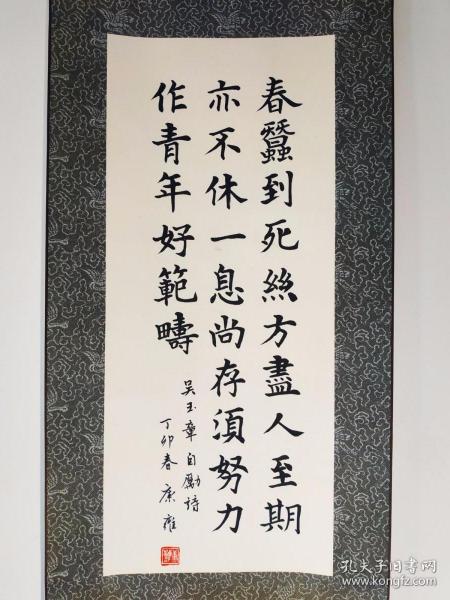 春蠶到死絲方盡人至期
亦不休一息尚存須努力
作青年好範疇
吳玉章自勵詩
丁卯春康雍
孔夫子旧书网
www.kongfz.com